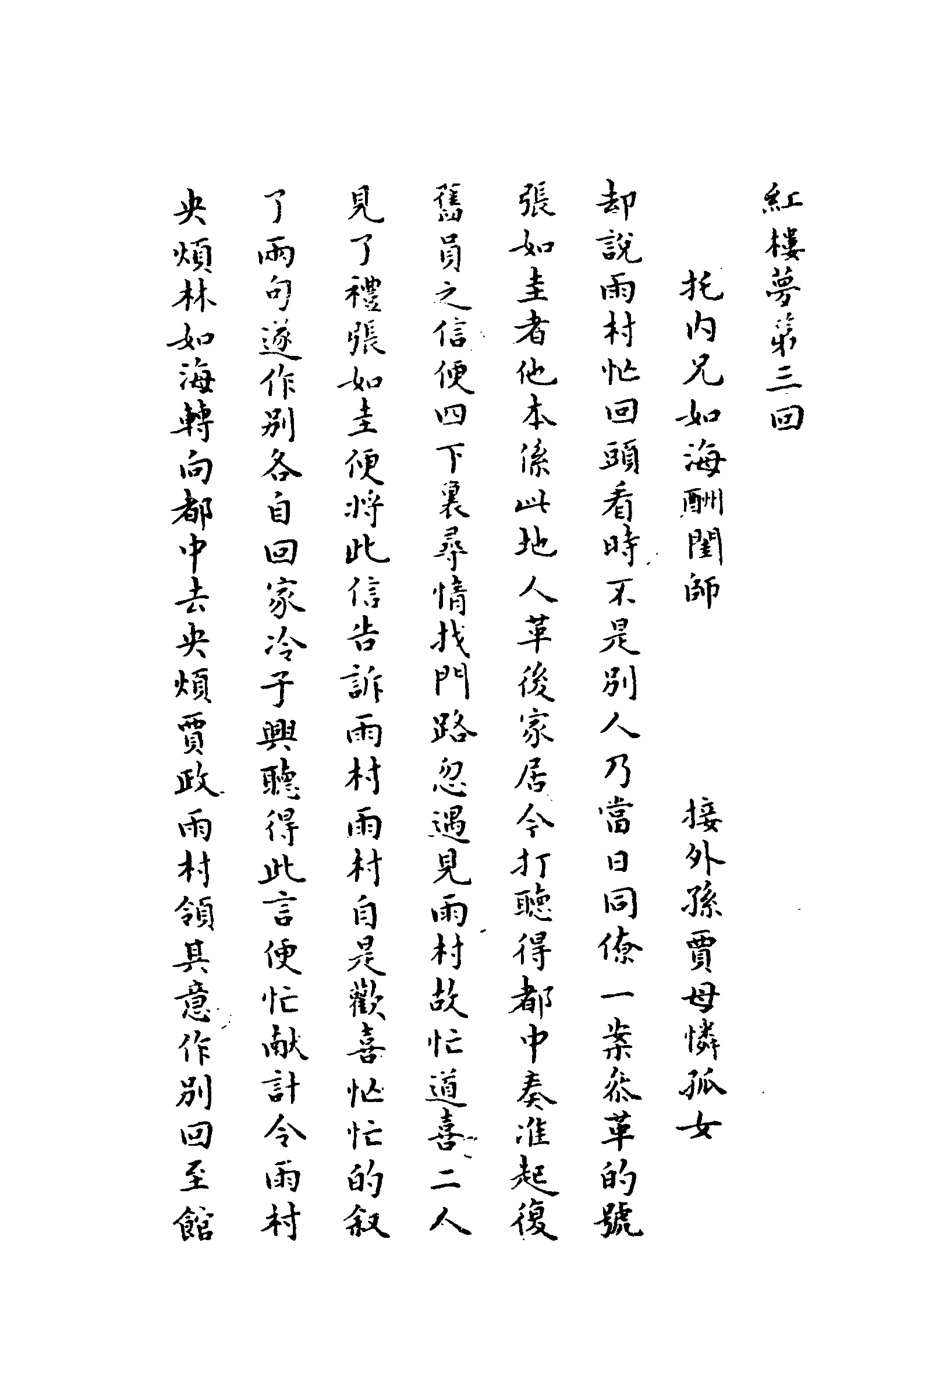 紅樓夢第三回
托内兄如海酬閨師　接外孫賈母憐孤女
却說雨村忙回頭看時不是別人乃當日同僚一案叅革的號
張如圭者他本係此地人革後家居今打聽得都中奏准起復
舊員之信便四下裏尋情找門路忽遇見雨村故忙道喜二人
見了禮張如圭便將此信告訴雨村雨村自是歡喜忙忙的叙
了兩句遂作別各自回家冷子興聽得此言便忙献計令雨村
央煩林如海轉向都中去央煩賈政雨村領其意作別回至館